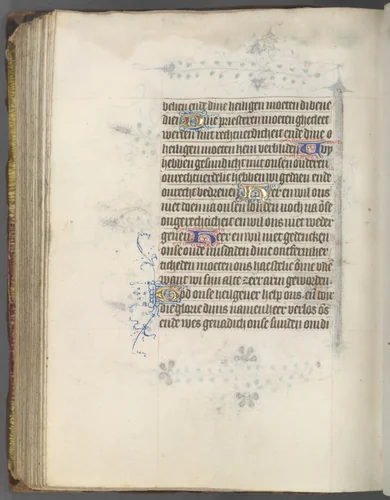 velien ende dine heiligen moeten di bene
dien Dine priesteren moeten ghecleet
werden mit rechtuerdicheit ende dine
heiligen moeten hem verbliden Wy
hebben gesundicht mit onsen ouderen
onrechtuerdelic hebben wi gedaen ende
onrecht bedreuen Here en wil ons
niet doen na onsen sonden noch na õse
ongerechticheit en wil ons niet weder
geuen Here en wil niet gedencken
onse oude misdaden dine ontfermher
ticheden moeten ons haestelic
want wi sijn alte zeer arm geworden
God onse heilgeuer help ons en doer
die glorie dijns namen heer verlos õs
ende wes genadich onse sunden om di